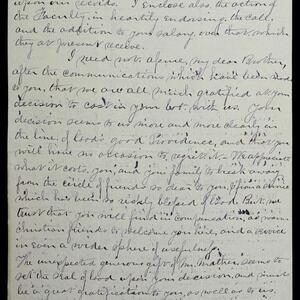 upon our records. I enclose also, the action of
the Faculty, in heartily endorsing, the call,
and the addition to your salary, over that which
they at present receive.
I need not assure, my dear Brother,
after the communications which have been made
to you, that we are all much gratified at your
decision to cast in your lot, with us. Your
decision seems to us more and more clearly in
the line, of God's good Providence, and that you
will have no occasion to regret it. We appreciate
what it costs, you, and your family to break away
from the circle of friends so dear to you, & from a service
which has been so richly blessed of God. But, we
trust that you will find in compensation, as warm
Christian friends to welcome you here, and a service
in even a wider sphere of usefulness.
The unexpected generous gift of Mr. Mather, seems to
set the seal of God upon your decision, and must
be a great gratification to you, as well as to us.